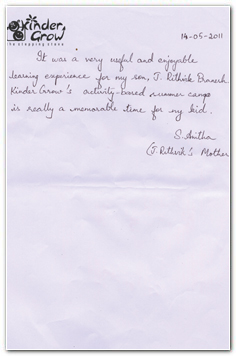 Kinder
Grow
the stepping stone
14-05-2011
It was a very useful and enjoyable
learning experience for my son, J. Rithick
Kinder Grow's activity-based summer camp
is really a memorable time for my kid.
S. Anitha
(J. Rithik's Mother